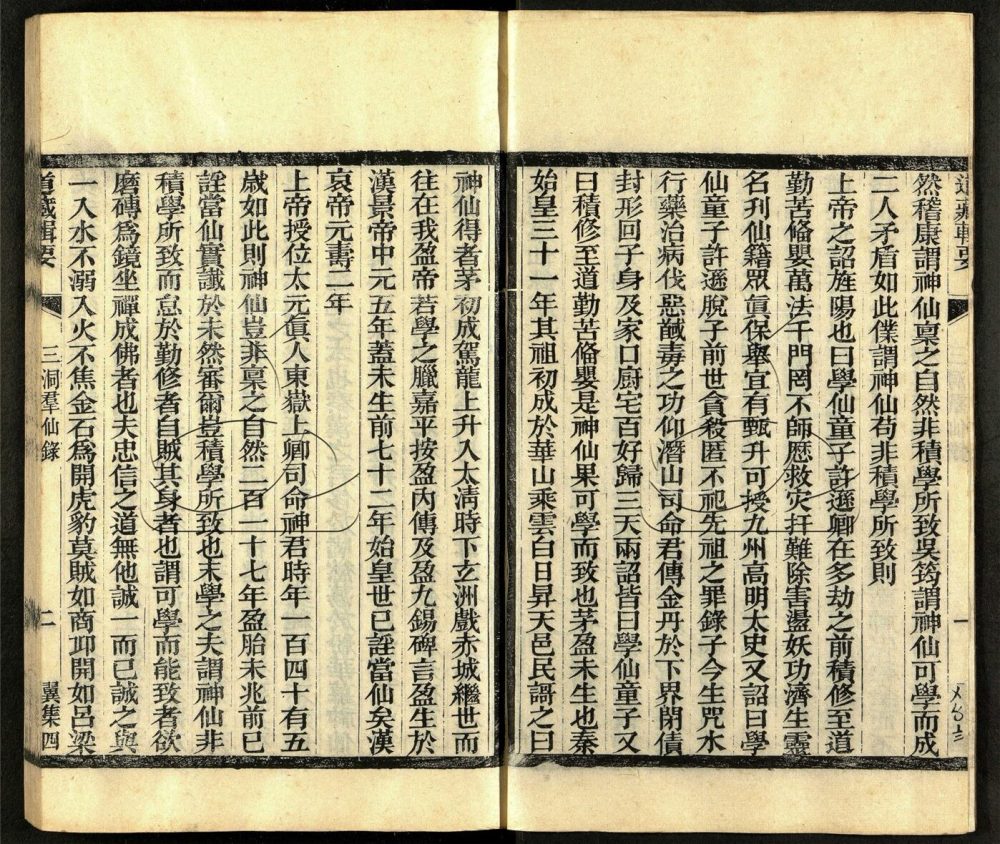 道藏輯要
然稽康謂神仙稟之自然非積學所致吳筠謂神仙可學而成
二人矛盾如此僕謂神仙苟非積學所致則
上帝之詔旌陽也曰學仙童子許遜卿在多劫之前積修至道
勤苦俻嬰萬法千門罔不師歷救灾扞難除害盪妖功濟生靈
名刋仙籍眾眞保舉宜有甄升可授九州高明太史又詔曰學
仙童子許遜脫子前世貪殺匿不祀先祖之罪錄子今生咒水
行藥治病伐惡馘毒之功仰濳山司命君傳金丹於下界閉債
封形回子身及家口厨宅百好歸三天兩詔皆曰學仙童子又
曰積修至道勤苦俻嬰是神仙果可學而致也茅盈未生也秦
始皇三十一年其祖初成於華山乘雲白日昇天邑民謌之曰
神仙得者茅初成駕龍上升入太淸時下玄洲戲赤城繼世而
往在我盈帝若學之臘嘉平按盈內傳及盈九錫碑言盈生於
漢景帝中元五年蓋未生前七十二年始皇世已謡當仙矣漢
哀帝元壽二年
上帝授位太元眞人東嶽上卿司命神君時年一百四十有五
歲如此則神仙豈非稟之自然二百一十七年盈胎未兆前已
謡當仙實讖於未然審爾豈積學所致也末學之夫謂神仙非
積學所致而怠於勤修者自賊其身者也謂可學而能致者欲
磨磚爲鏡坐禪成佛者也夫忠信之道無他誠一而已誠之與
一入水不溺入火不焦金石爲開虎豹莫賊如商丘開如呂梁
道藏輯要 三洞羣仙錄 二 翼集四